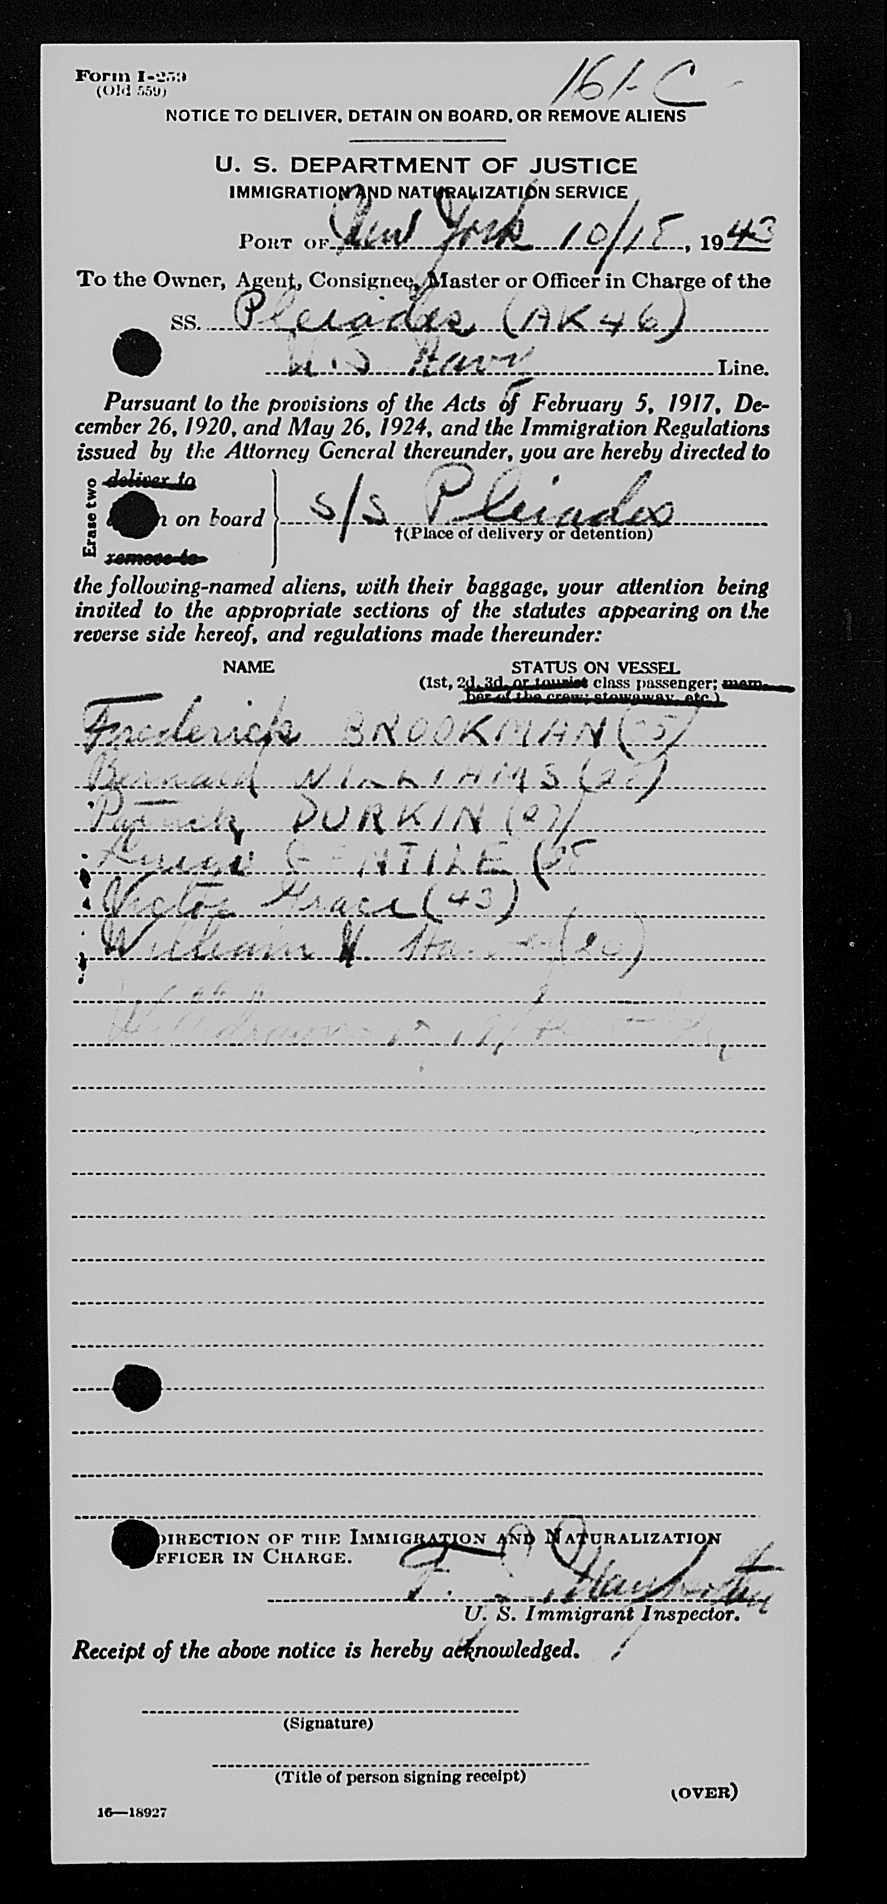 Form I-259
(Old 559)
161-C
NOTICE TO DELIVER, DETAIN ON BOARD, OR REMOVE ALIENS
U. S. DEPARTMENT OF JUSTICE
IMMIGRATION AND NATURALIZATION SERVICE
PORT OF New York 10/18, 1943
To the Owner, Agent, Consignee, Master or Officer in Charge of the
SS. Pleiades (AK46)
U.S Navy Line.
Pursuant to the provisions of the Acts of February 5, 1917, De-
cember 26, 1920, and May 26, 1924, and the Immigration Regulations
issued by the Attorney General thereunder, you are hereby directed to
Erase two
deliver to
on board S/S Pleiades
†(Place of delivery or detention)
remove to
the following-named aliens, with their baggage, your attention being
invited to the appropriate sections of the statutes appearing on the
reverse side hereof, and regulations made thereunder:
NAME STATUS ON VESSEL
(1st, 2d, 3d, or tourist class passenger; mem-
ber of the crew; stowaway, etc.)
Frederick BROOKMAN
Bernard WILLIAMS
Patrick DURKIN (27)
GENTILE
Victor Grace (43)
William H.
DIRECTION OF THE IMMIGRATION AND NATURALIZATION
OFFICER IN CHARGE.
U. S. Immigrant Inspector.
Receipt of the above notice is hereby acknowledged.
(Signature)
(Title of person signing receipt)
(OVER)
16—18927